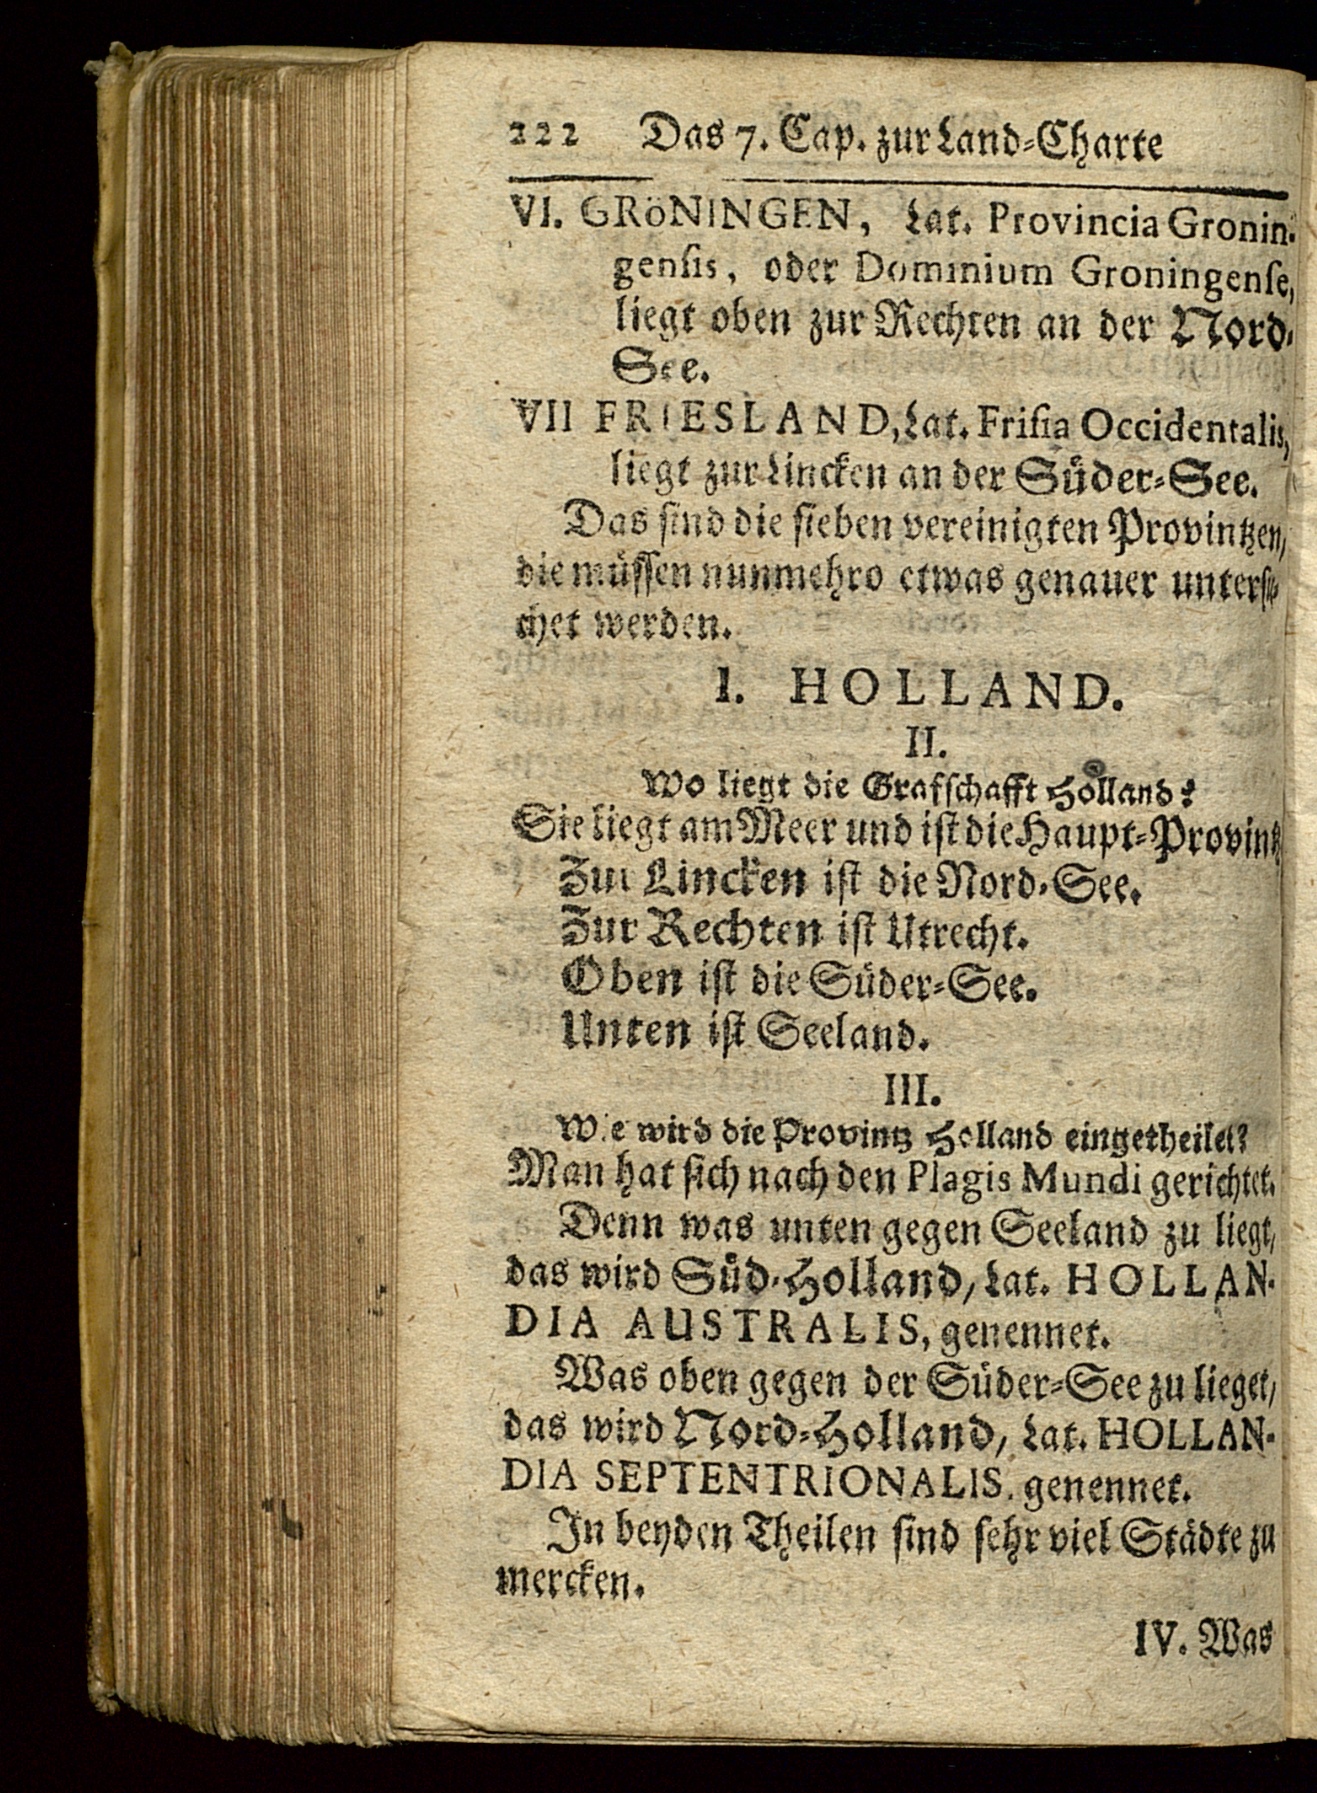 222 Das 7. Cap. zur Land-Charte
VI. GRöNINGEN, Lat. Provincia Gronin-
genſis, oder Dominium Groningenſe,
liegt oben zur Rechten an der Nord-
See.
VII FRIESLAND, Lat. Friſia Occidentalis,
liegt zur Lincken an der Süder-See.
Das ſind die ſieben vereinigten Provintzen,
die müſſen nunmehro etwas genauer unterſu-
chet werden.
I. HOLLAND.
II.
Wo liegt die Grafſchafft Holland?
Sie liegt am Meer und iſt die Haupt-Provintz
Zur Lincken iſt die Nord-See.
Zur Rechten iſt Utrecht.
Oben iſt die Süder-See.
Unten iſt Seeland.
III.
Wie wird die Provintz Holland eingetheilet?
Man hat ſich nach den Plagis Mundi gerichtet.
Denn was unten gegen Seeland zu liegt,
das wird Süd-Holland, Lat. HOLLAN-
DIA AUSTRALIS, genennet.
Was oben gegen der Süder-See zu lieget,
das wird Nord-Holland, Lat. HOLLAN-
DIA SEPTENTRIONALIS. genennet.
In beyden Theilen ſind ſehr viel Städte zu
mercken.
IV. Was